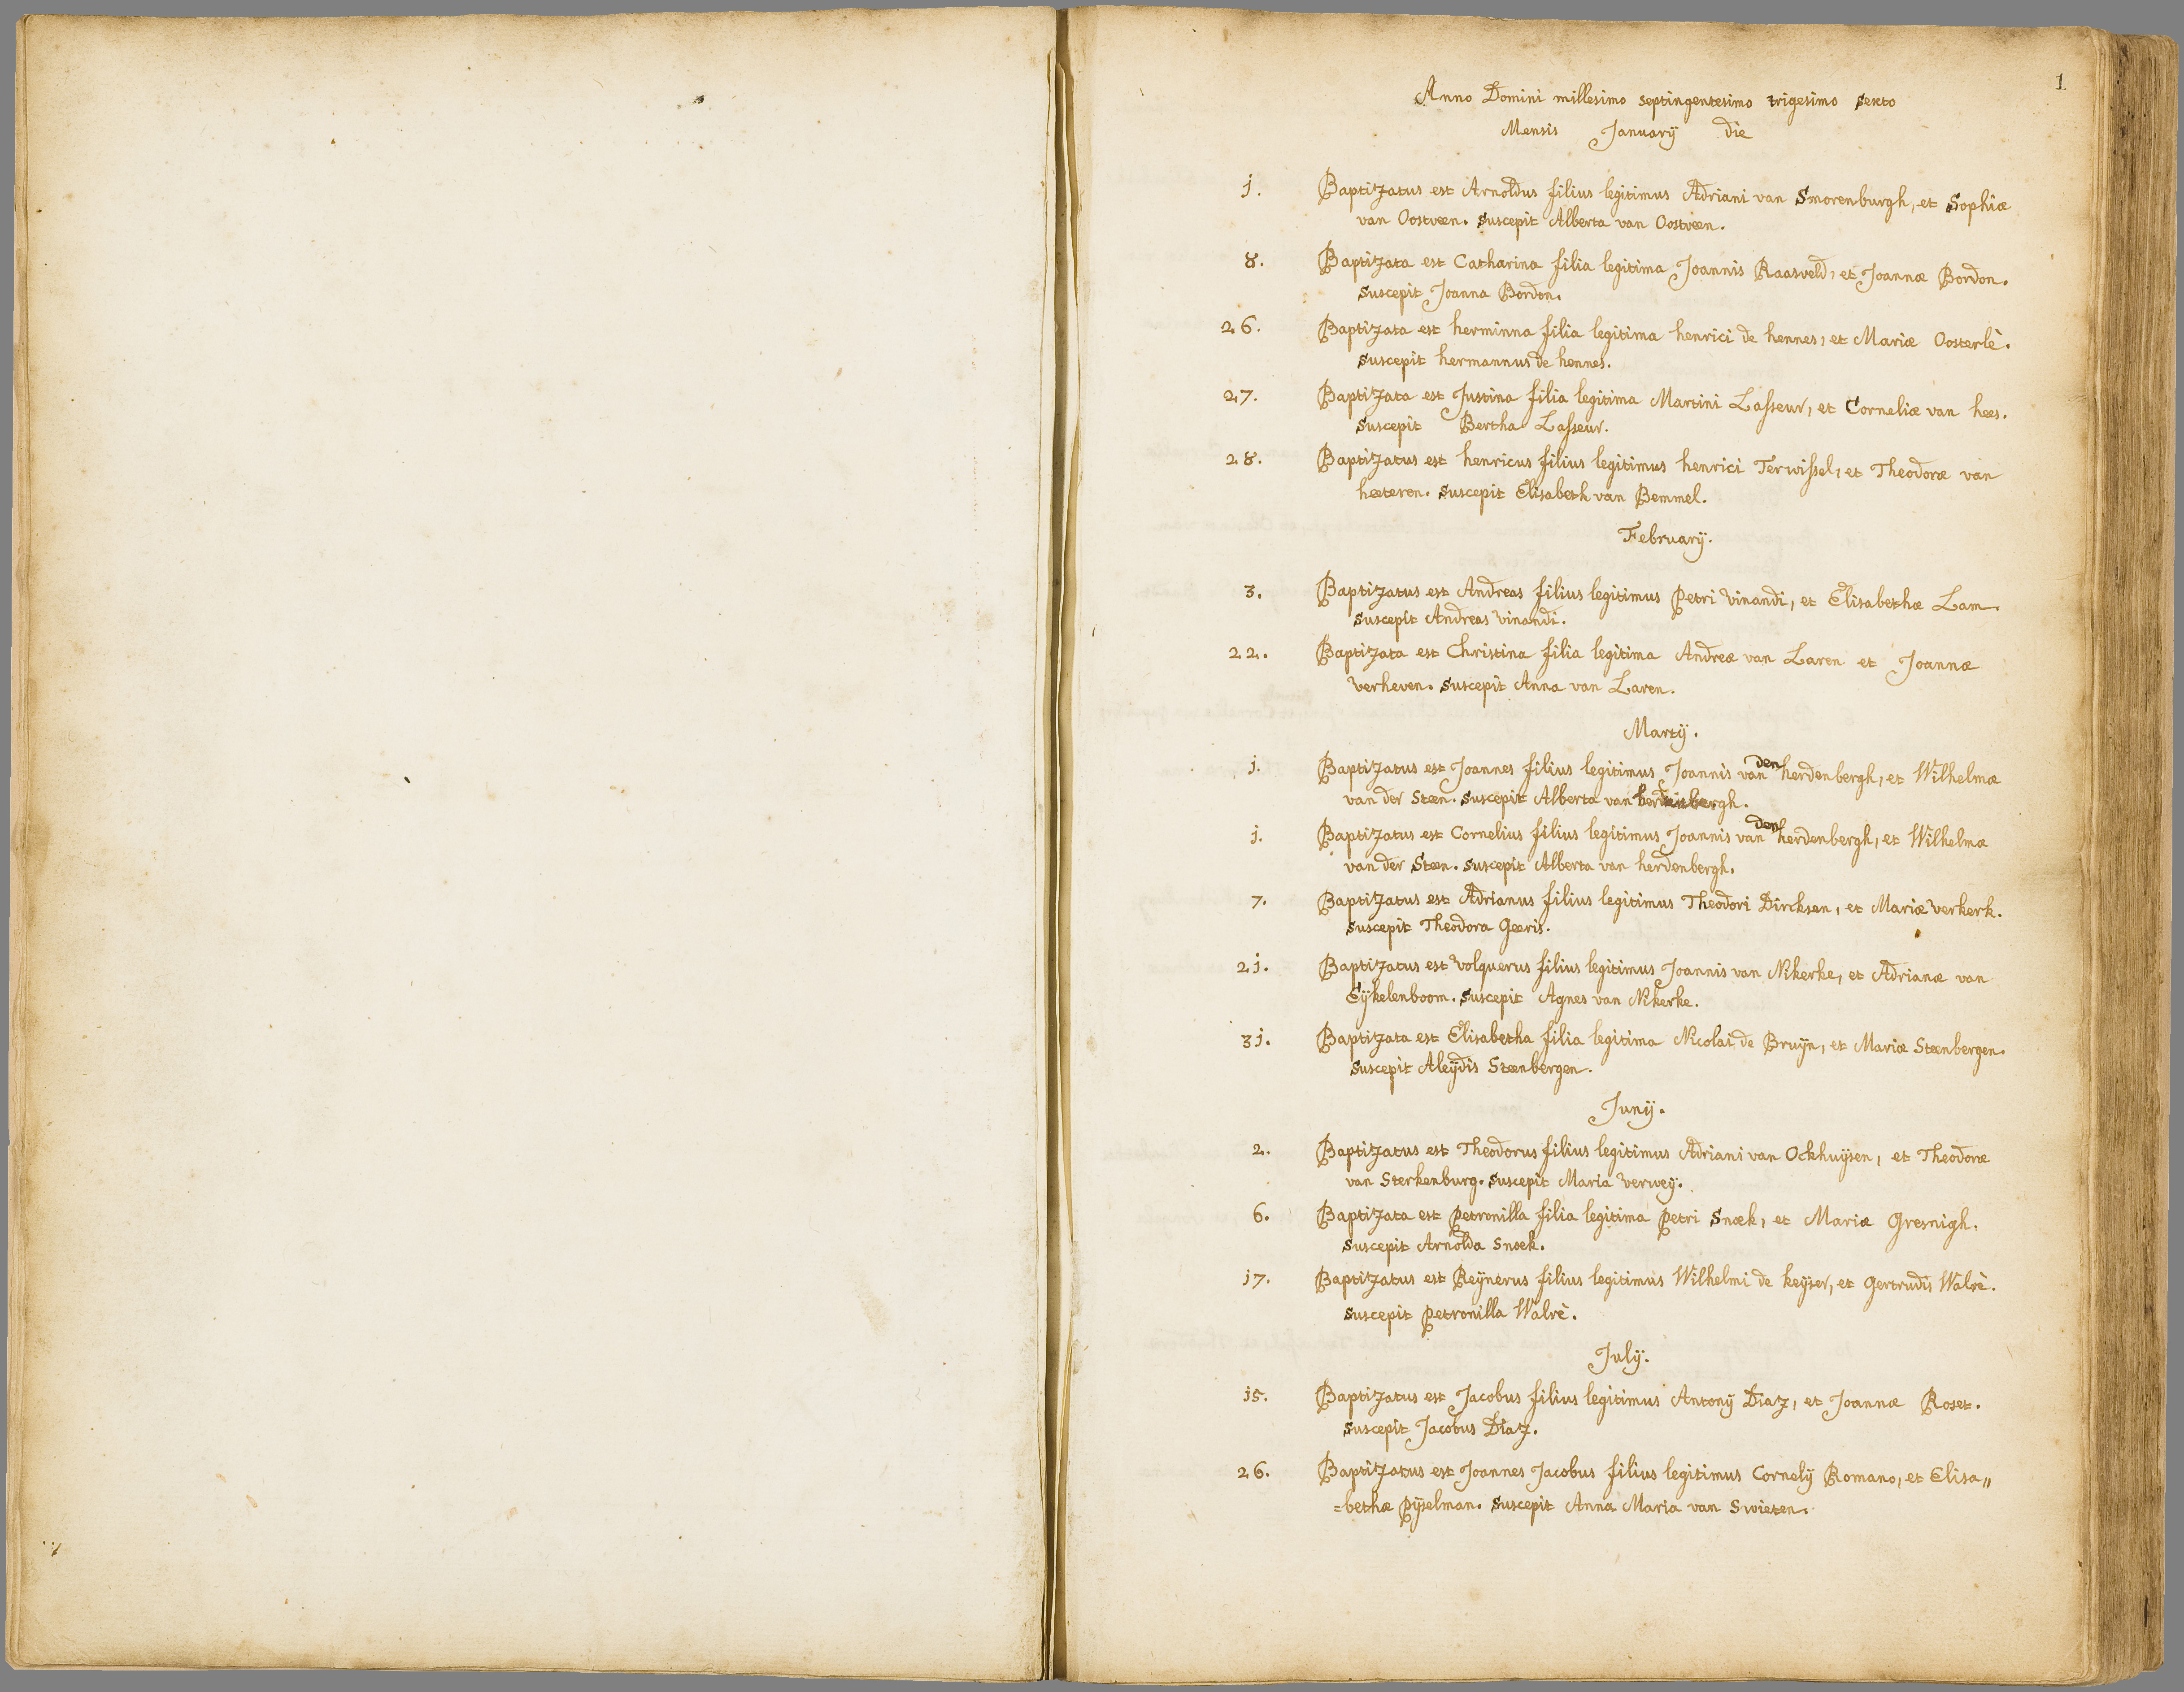 1
Anno Domini millesimo septingentesimo trigesimo sexto
Mensis Januarÿ die
j. Baptizatus est Arnoldus filius legitimus Adriani van Smorenburgh, et Sophiæ
van Oostveen. suscepit Alberta van Oostveen.
8. Baptizata est Catharina filia legitima Joannis Raasveld, et Joannæ Bordon.
suscepit Joanna Bordon.
26. Baptizata est herminna filia legitima henrici de hennes, et Mariæ Oosterlè.
suscepit hermannus de hennes.
27. Baptizata est Justina filia legitima Martini Lasseur, et Corneliæ van hees.
suscepit Bertha Lasseur.
28. Baptizatus est henricus filius legitimus henrici Terwissel, et Theodoræ van
heeteren. suscepit Elisabeth van Bemmel.
Februarÿ.
3. Baptizatus est Andreas filius legitimus Petri Vinandi, et Elisabethæ Lam.
suscepit Andreas Vinandi.
22. Baptizata est Christina filia legitima Andreæ van Laren et Joannæ
Verheven. suscepit Anna van Laren.
Martÿ.
j. Baptizatus est Joannes filius legitimus Joannis van den herdenbergh, et Wilhelmæ
van der Steen. suscepit Alberta van herdenbergh.
j. Baptizatus est Cornelius filius legitimus Joannis van den herdenbergh, et Wilhelmæ
van der Steen. suscepit Alberta van herdenbergh.
7. Baptizatus est Adrianus filius legitimus Theodori Dircksen, et Mariæ Verkerk.
suscepit Theodora Geeris.
2j. Baptizatus est Volquerus filius legitimus Joannis van Nikerke, et Adrianæ van
Eÿkelenboom. suscepit Agnes van Nikerke.
3j. Baptizata est Elisabetha filia legitima Nicolai de Bruÿn, et Mariæ Steenbergen.
suscepit Aleÿdis Steenbergen.
Junÿ.
2. Baptizatus est Theodorus filius legitimus Adriani van Ockhuÿsen, et Theodoræ
van Sterkenburg. suscepit Maria Verweÿ.
6. Baptizata est Petronilla filia legitima Petri Snoek, et Mariæ Gresnigh.
suscepit Arnolda Snoek.
j7. Baptizatus est Reÿnerus filius legitimus Wilhelmi de keÿser, et Gertrudis Walrè.
suscepit Petronilla Walrè.
Julÿ.
j5. Baptizatus est Jacobus filius legitimus Antonÿ Diaz, et Joannæ Roset.
suscepit Jacobus Diaz.
26. Baptizatus est Joannes Jacobus filius legitimus Cornelÿ Romano, et Elisa„
=bethæ Pÿselman. suscepit Anna Maria van Swieten.